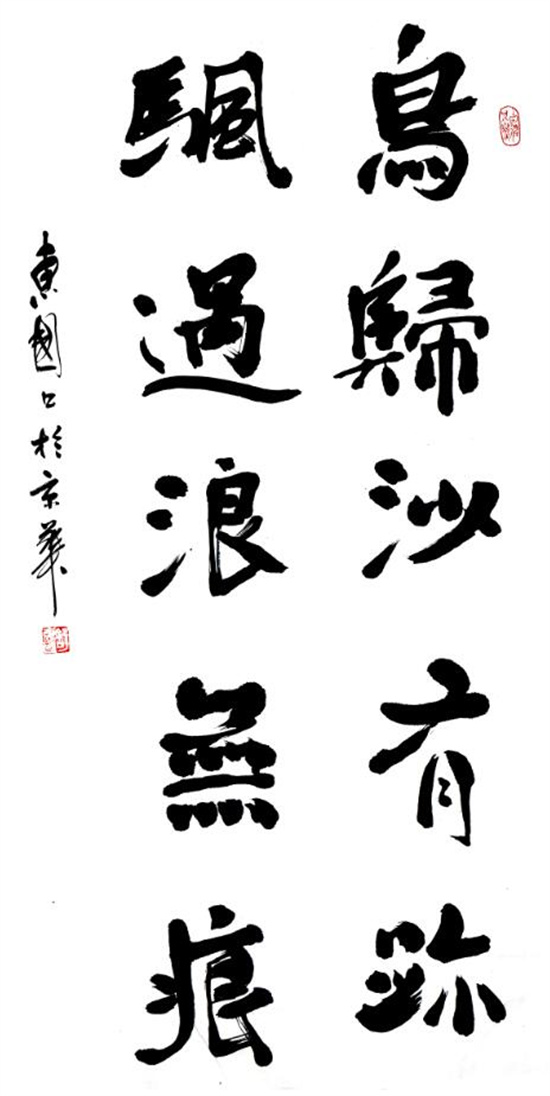 鳥歸沙有跡
颿過浪無痕
國於京華